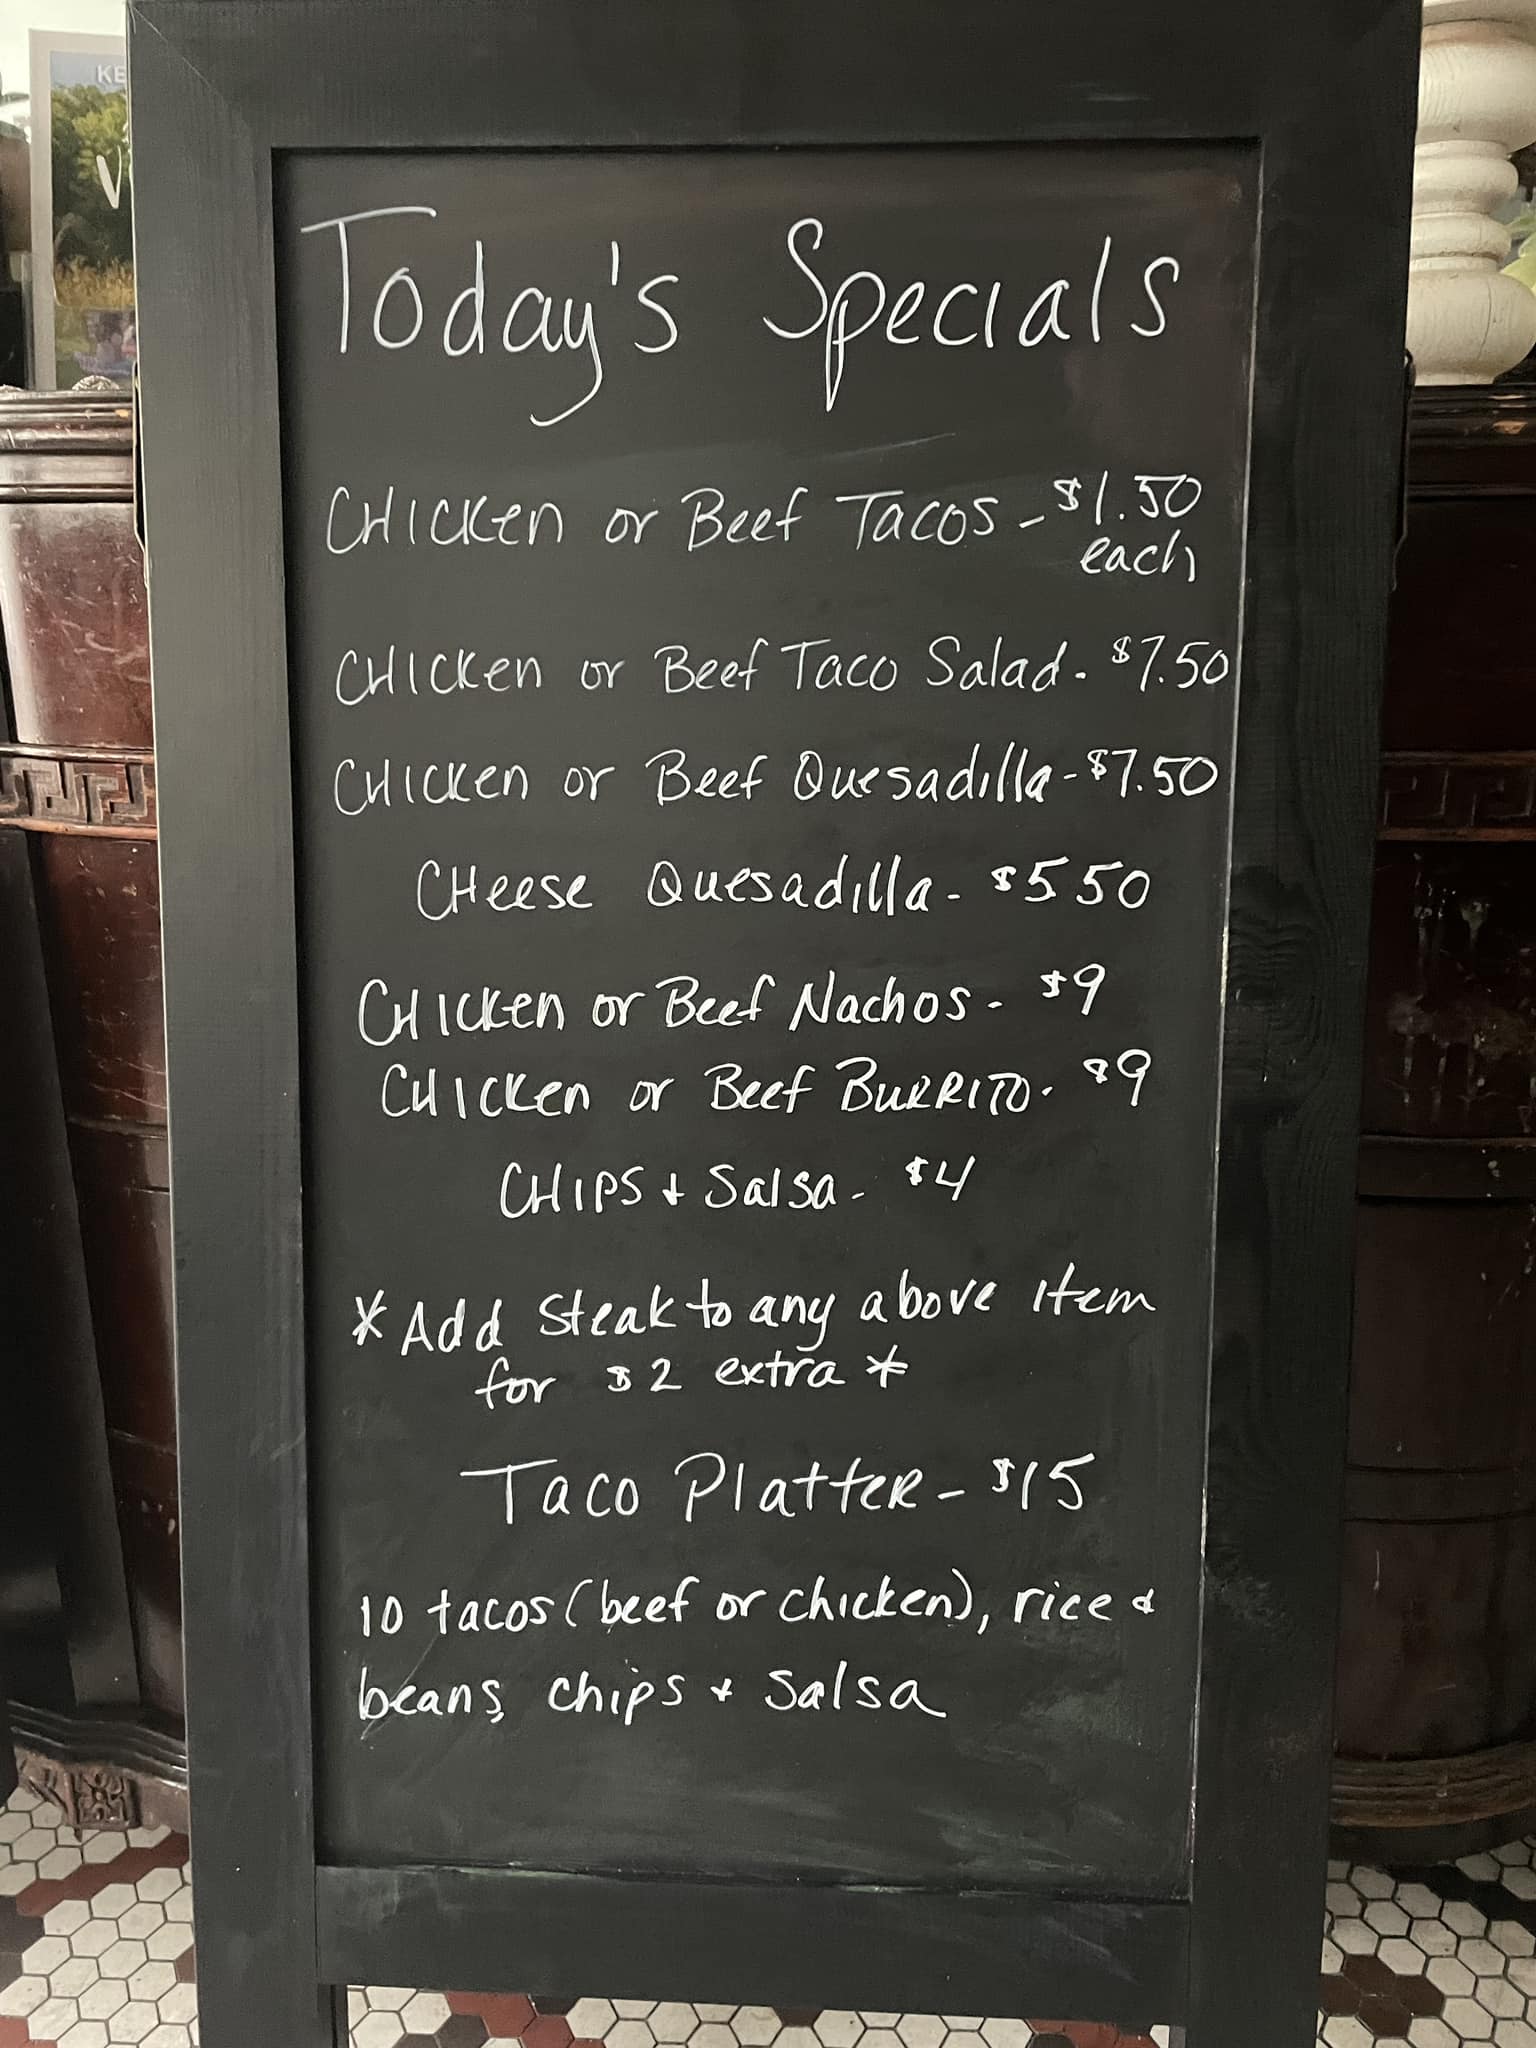 KE
V
Today's Specials
Chicken or Beef Tacos - $1.50
each
Chicken or Beef Taco Salad - $7.50
Chicken or Beef Quesadilla - $7.50
Cheese Quesadilla - $5.50
Chicken or Beef Nachos - $9
Chicken or Beef Burrito - $9
Chips + Salsa - $4
* Add Steak to any above item
for $2 extra *
Taco Platter - $15
10 tacos (beef or chicken), rice &
beans, chips + Salsa